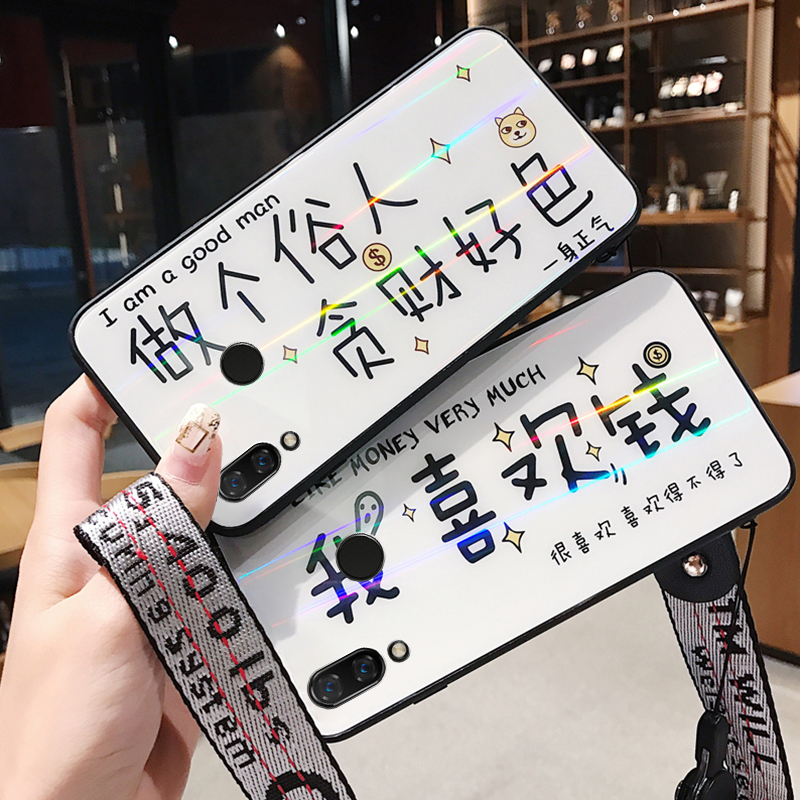 I am a good man
做个俗人
贪财好色
一身正气
LIKE MONEY VERY MUCH
我喜欢钱
很喜欢 喜欢得不得了